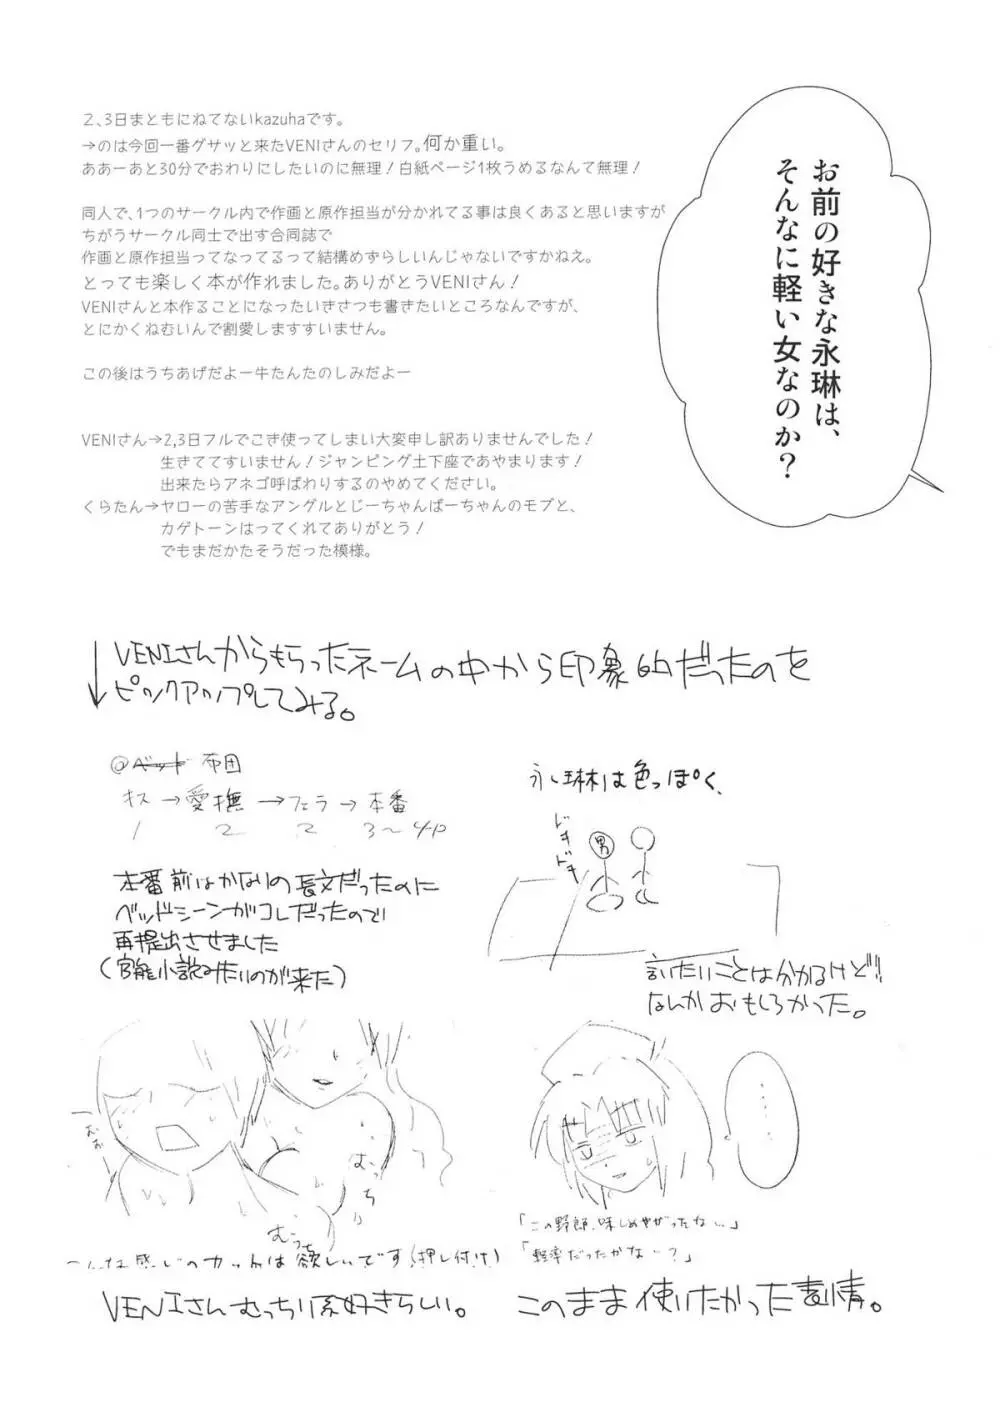 お前の好きな永琳は、
そんなに軽い女なのか？
２、3日まともにねてないkazuhaです。
→のは今回一番グサッと来たVENIさんのセリフ。何か重い。
ああーあと30分でおわりにしたいのに無理！白紙ページ1枚うめるなんて無理！
同人で、1つのサークル内で作画と原作担当が分かれてる事は良くあると思いますが
ちがうサークル同士で出す合同誌で
作画と原作担当ってなってるって結構めずらしいんじゃないですかねえ。
とっても楽しく本が作れました。ありがとうVENIさん！
VENIさんと本作ることになったいきさつも書きたいところなんですが、
とにかくねむいんで割愛しますすいません。
この後はうちあげだよー牛たんたのしみだよー
VENIさん→2,3日フルでこき使ってしまい大変申し訳ありませんでした！
生きててすいません！ジャンピング土下座であやまります！
出来たらアネゴ呼ばわりするのやめてください。
くらたん→ヤローの苦手なアングルとじーちゃんばーちゃんのモブと、
カゲトーンはってくれてありがとう！
でもまだかたそうだった模様。
↓VENIさんからもらったネームの中から印象的だったのを
ピックアップしてみる。
@ベット 布団
キス→愛撫→フェラ→本番
1 2 2 3〜4P
本番前はかなりの長文だったのに
ベッドシーンがコレだったので
再提出させました
(官能小説みたいのが来た)
永琳は色っぽく、
ドキドキ
男
言いたいことは分かるけど!!
なんかおもしろかった。
むぉぉ
むっちり
むっち
こんな感じのカットは欲しいです(押し付け)
VENIさんむっちり系好きらしい。
……
「この野郎、味しめやがったな…」
「軽率だったかな…？」
このまま使いたかった表情。